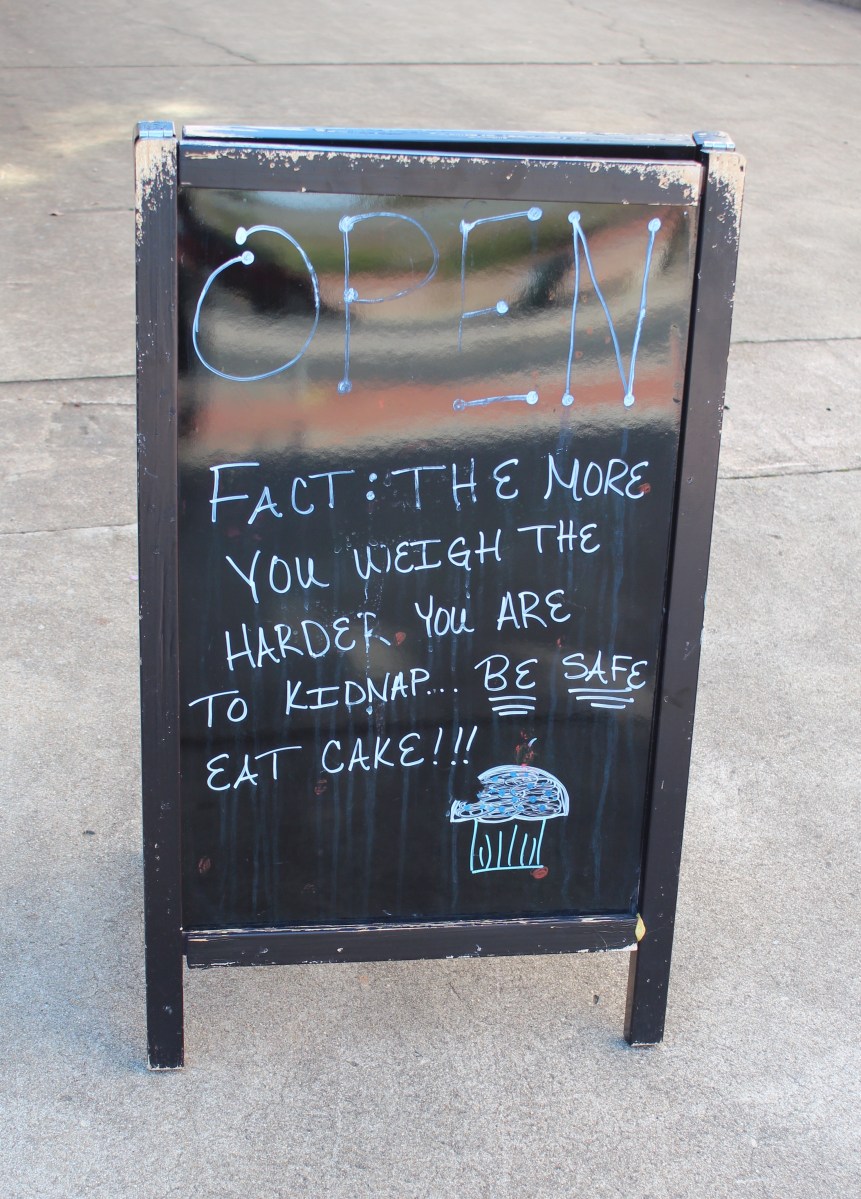 OPEN
FACT: THE MORE
YOU WEIGH THE
HARDER YOU ARE
TO KIDNAP... BE SAFE
EAT CAKE!!!